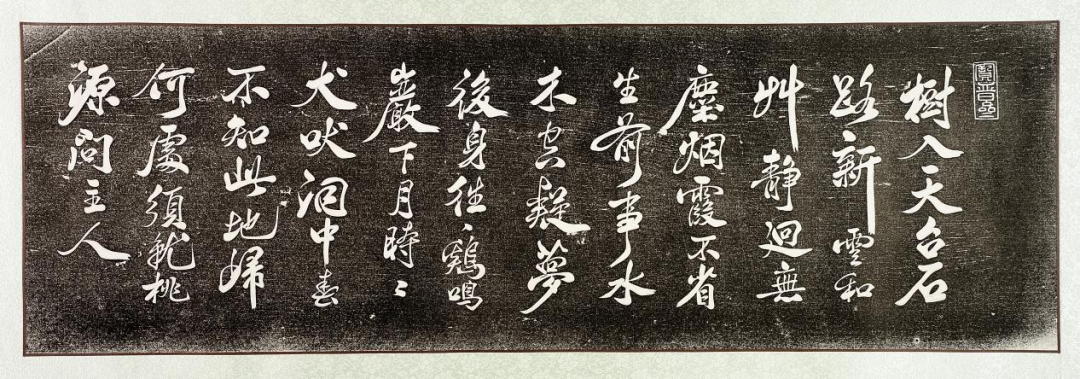 樹入天台石
路新雲和
艸静迥無
塵烟霞不省
生前事水
木空疑夢
後身往〻鷄鳴
巖下月時〻
犬吠洞中春
不知此地歸
何處須就桃
源問主人